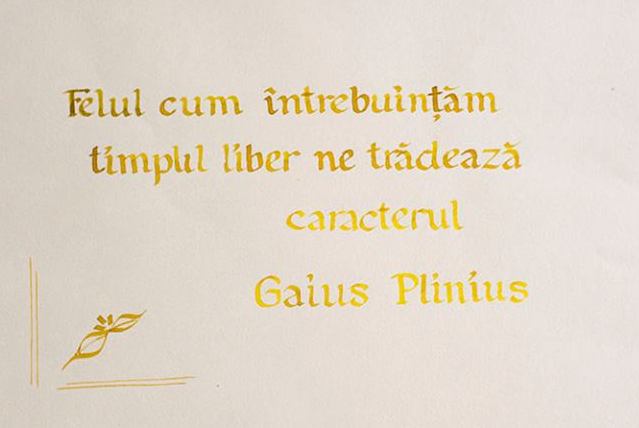 Felul cum întrebuințăm
timpul liber ne trădează
caracterul
Gaius Plinius